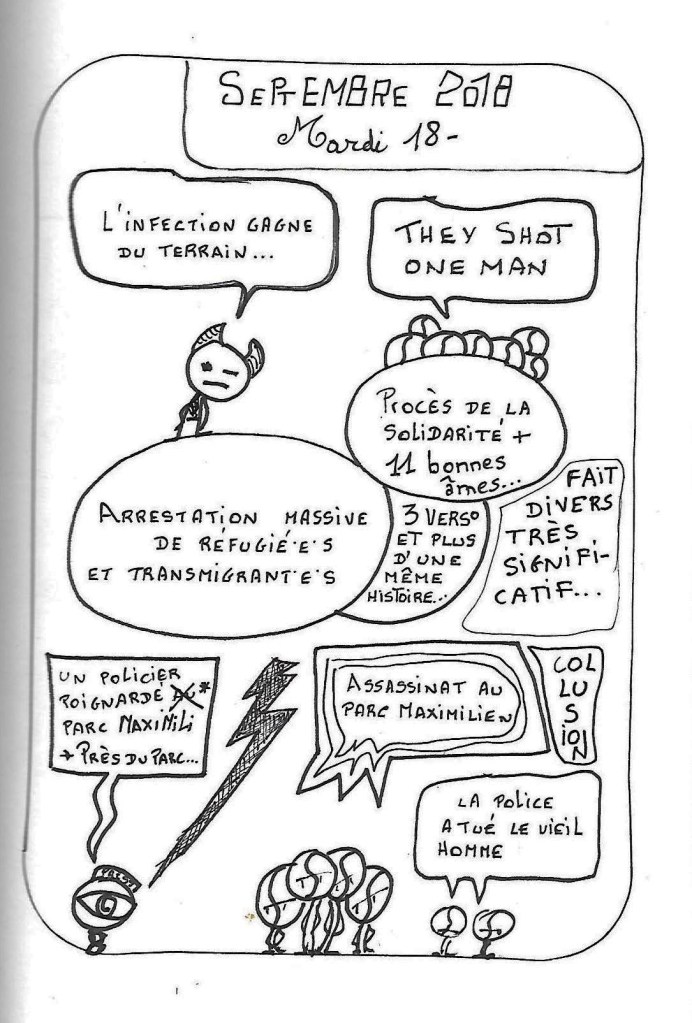 SEPTEMBRE 2018
Mardi 18-
L'INFECTION GAGNE
DU TERRAIN...
THEY SHOT
ONE MAN
PROCÈS DE LA
SOLIDARITÉ +
11 bonnes
âmes...
ARRESTATION MASSIVE
DE RÉFUGIÉ·E·S
ET TRANSMIGRANT·E·S
3 VERSO
ET PLUS
D'UNE
MÊME
HISTOIRE...
FAIT
DIVERS
TRÈS
SIGNIFI-
CATIF...
UN POLICIER
POIGNARDÉ AU*
PARC MAXIMILI
* PRÈS DU PARC...
ASSASSINAT AU
PARC MAXIMILIEN
COL
LU
SION
LA POLICE
A TUÉ LE VIEIL
HOMME
PRESS